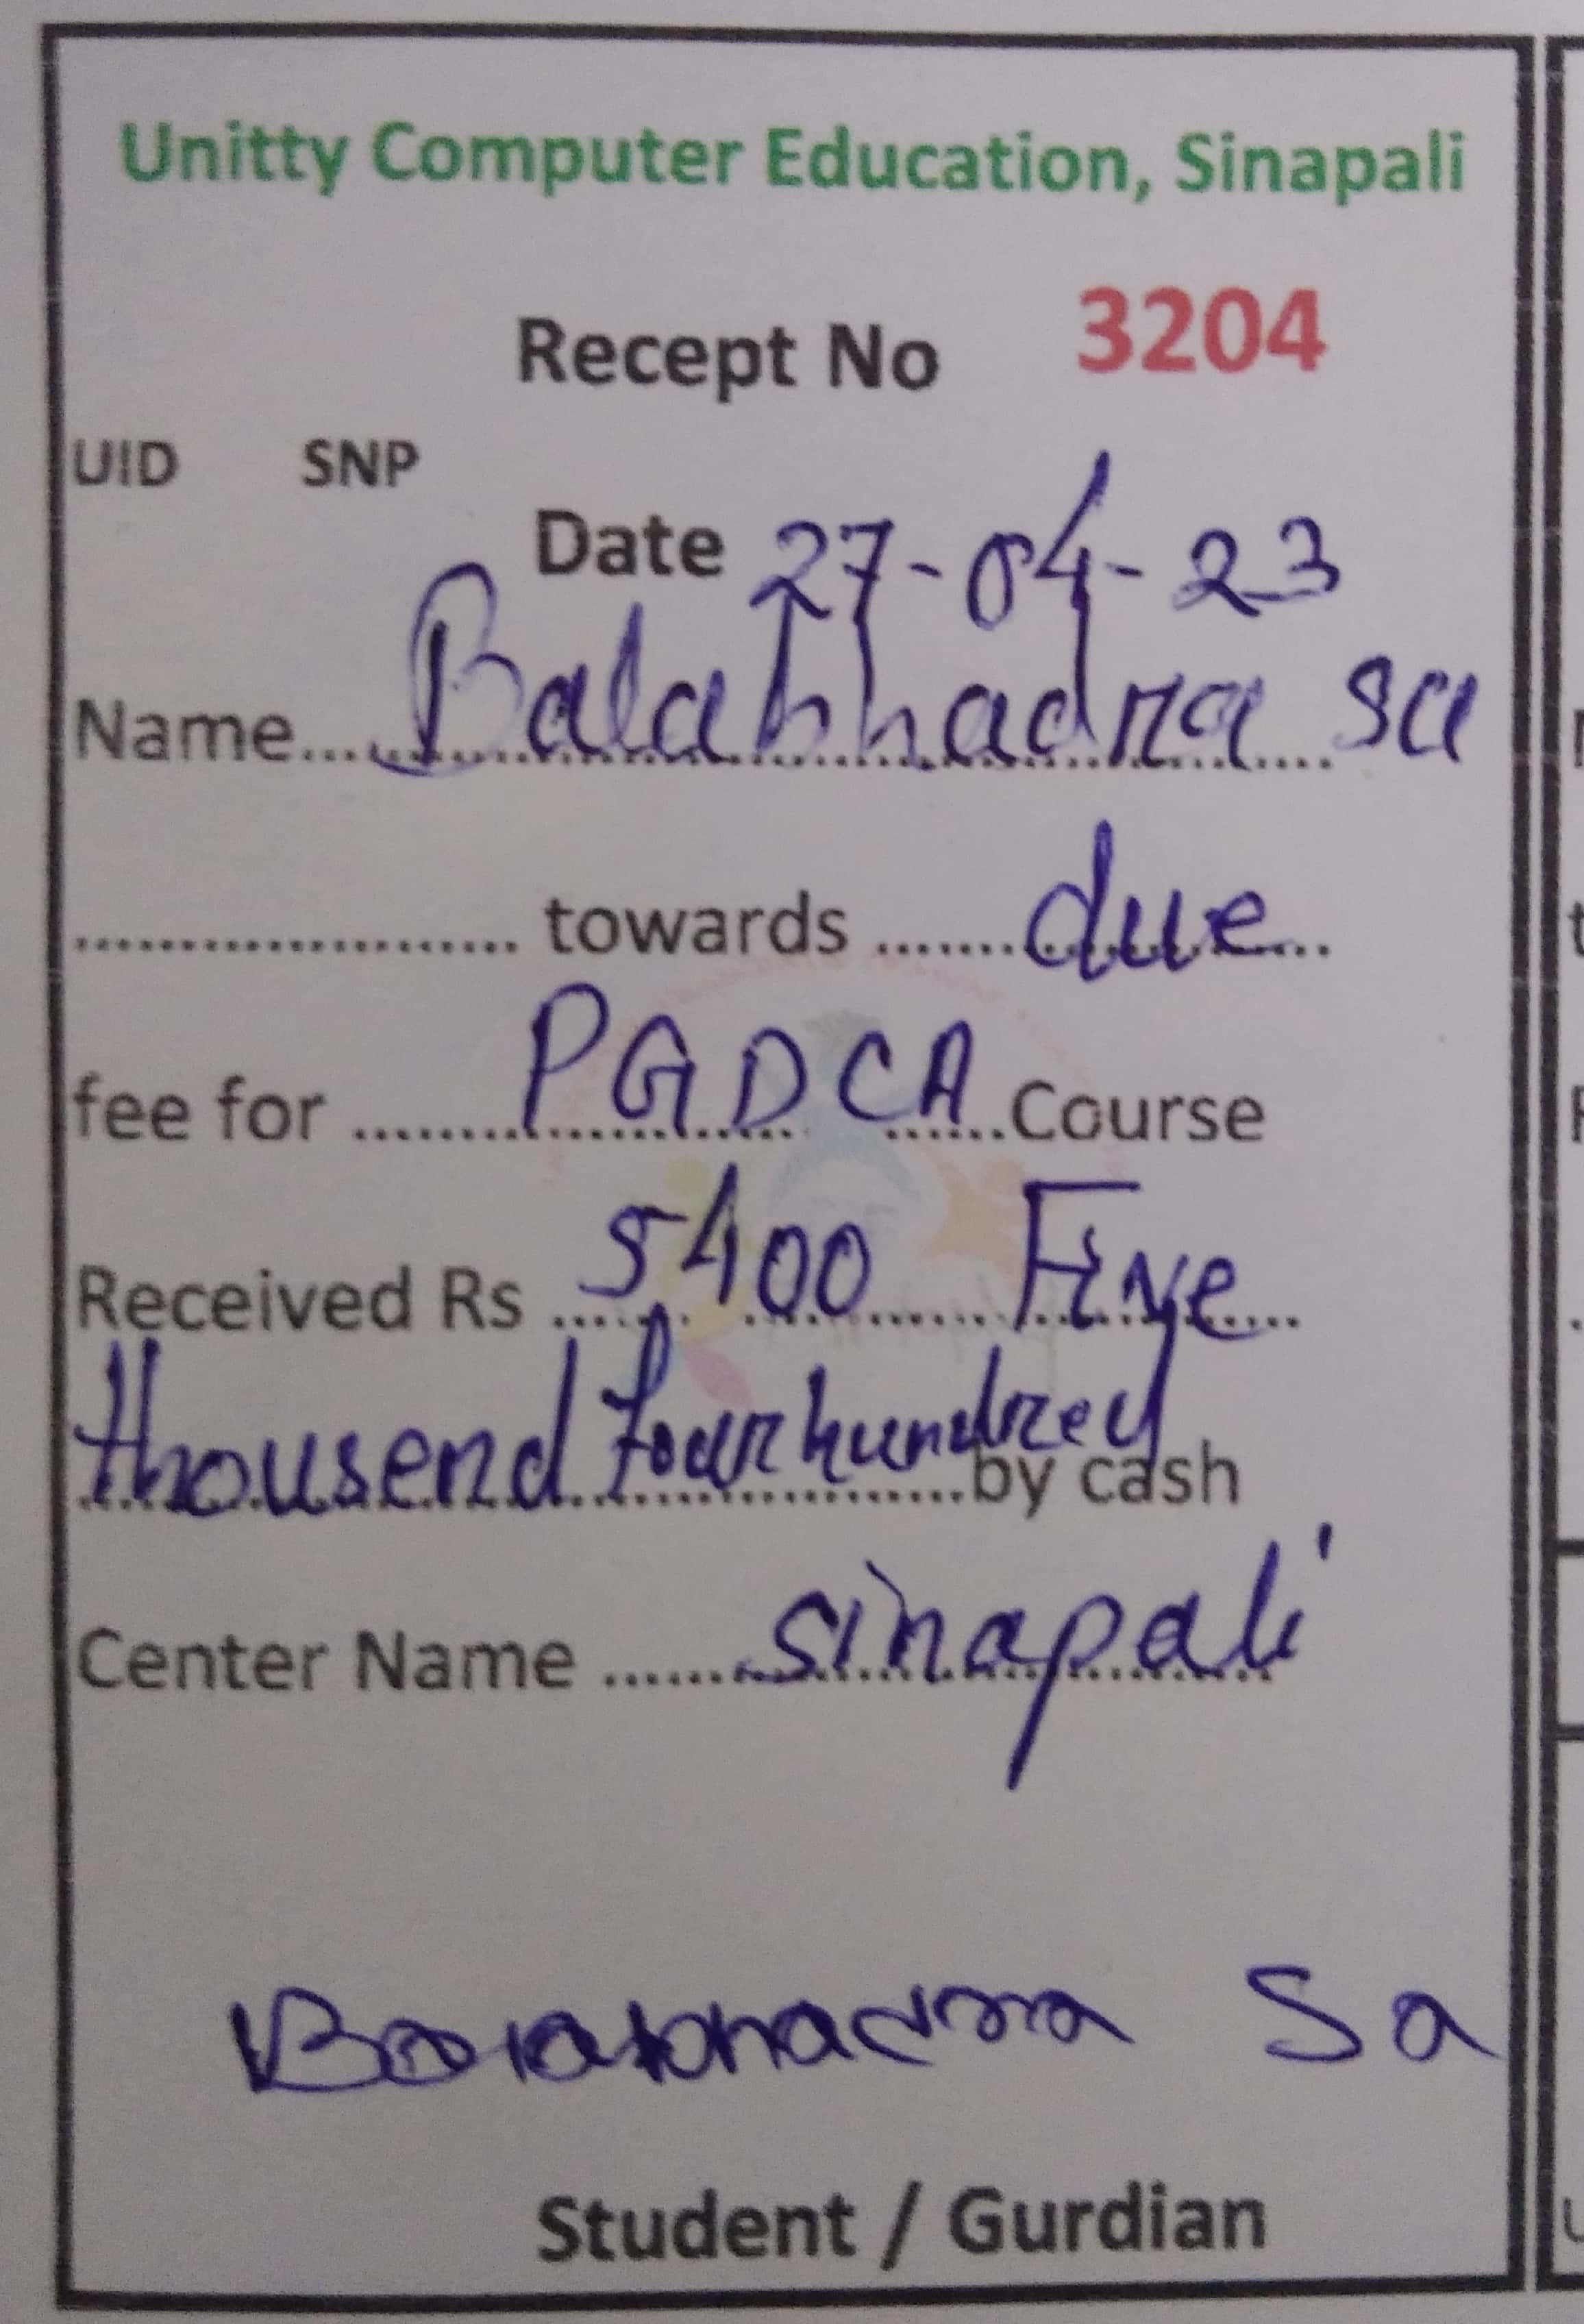 Unitty Computer Education, Sinapali
Recept No 3204
UID SNP
Date 27-04-23
Name....Balabhadra sa
.................... towards .......due...
fee for ........PGDCA...Course
Received Rs .....5400 Five...
thousend four hundrey by cash
Center Name .......sinapali
Balabhadra Sa
Student / Gurdian